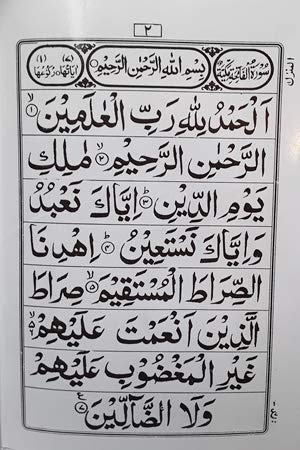 ٢
سُوْرَةُ الْفَاتِحَةِ مَكِّيَّةٌ بِسْمِ اللّٰهِ الرَّحْمٰنِ الرَّحِيْمِ (٧) اٰيَاتُهَا (١) رُكُوْعُهَا
اَلْحَمْدُ لِلّٰهِ رَبِّ الْعٰلَمِيْنَ ۙ﴿١﴾
الرَّحْمٰنِ الرَّحِيْمِ ۙ﴿٢﴾ مٰلِكِ
يَوْمِ الدِّيْنِ ؕ﴿٣﴾ اِيَّاكَ نَعْبُدُ
وَاِيَّاكَ نَسْتَعِيْنُ ؕ﴿٤﴾ اِهْدِنَا
الصِّرَاطَ الْمُسْتَقِيْمَ ۙ﴿٥﴾ صِرَاطَ
الَّذِيْنَ اَنْعَمْتَ عَلَيْهِمْ ۙ۬ۙ﴿٦﴾
غَيْرِ الْمَغْضُوْبِ عَلَيْهِمْ
وَلَا الضَّآلِّيْنَ ﴿٧﴾